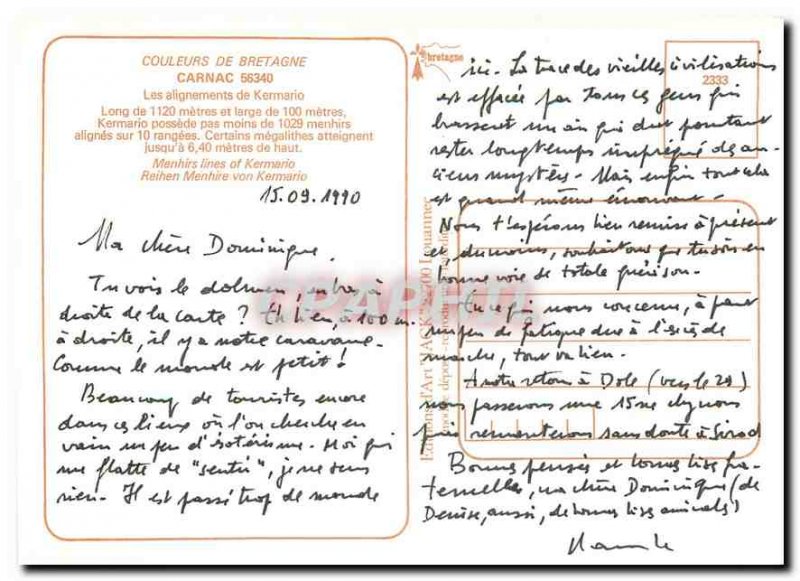 COULEURS DE BRETAGNE
CARNAC 56340
Les alignements de Kermario
Long de 1120 mètres et large de 100 mètres,
Kermario possède pas moins de 1029 menhirs
alignés sur 10 rangées. Certains mégalithes atteignent
jusqu'à 6,40 mètres de haut.
Menhirs lines of Kermario
Reihen Menhire von Kermario
15.09.1990
Ma chère Dominique,
Tu vois le dolmen, en bas à
droite de la carte ? Eh bien, à 100 m.
à droite, il y a notre caravane.
Comme le monde est petit !
Beaucoup de touristes encore
dans ces lieux où l'on cherche en
vain un peu d'ésotérisme. Moi qui
me flatte de "sentir", je ne sens
rien. Il est passé trop de monde
bretagne
2333
ici. La trace des vieilles civilisations
est effacée par tous ces gens qui
brassent un air qui dut pourtant
rester longtemps imprégné des an-
ciens mystères. Mais enfin tout cela
est quand même émouvant.
Nous t'espérons bien remise à présent
et, du moins, souhaitons que tu sois en
bonne voie de totale guérison.
En ce qui nous concerne, à part
un peu de fatigue due à l'excès de
marche, tout va bien.
A notre retour à Dole (vers le 20)
nous passerons une 15ne chez nous
puis remonterons sans doute à Sirod
Bonnes pensées et bonnes bises fra-
ternelles, ma chère Dominique (de
Denise, aussi, de bonnes bises amicales)
Editions d'Art "JACK" 22700 Louannec